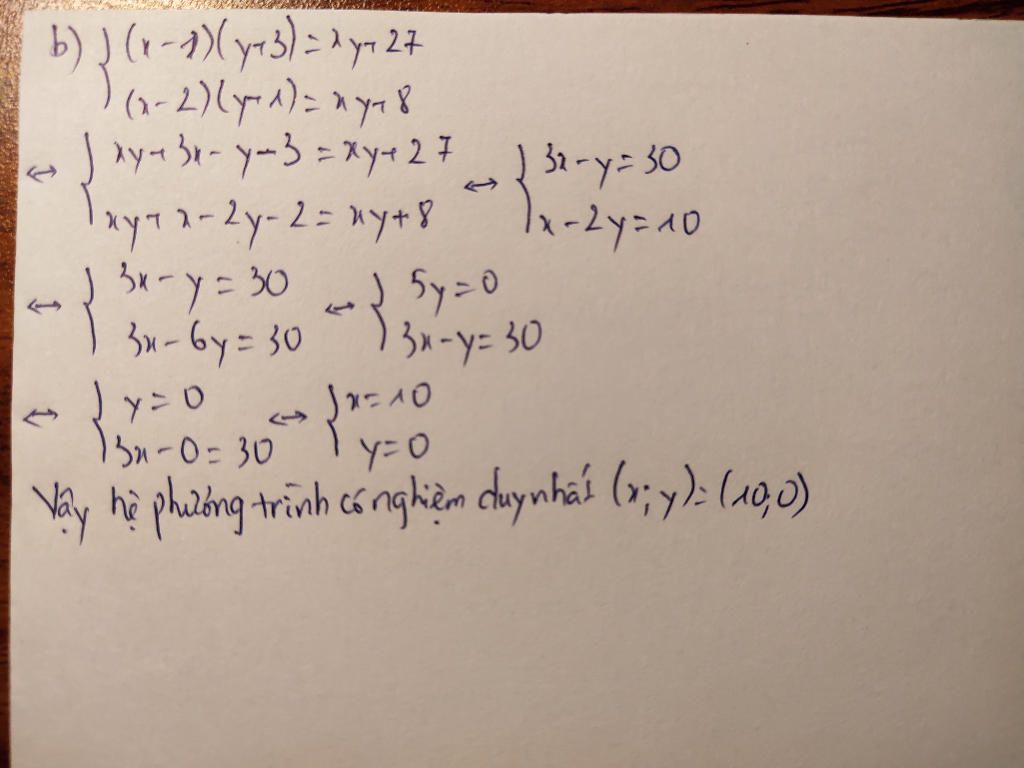 b) { (x-1)(y+3)=xy+27
(x-2)(y+1)=xy+8
↔ { xy+3x-y-3=xy+27 ↔ { 3x-y=30
xy+x-2y-2=xy+8 x-2y=10
↔ { 3x-y=30 ↔ { 5y=0
3x-6y=30 3x-y=30
↔ { y=0 ↔ { x=10
3x-0=30 y=0
Vậy hệ phương trình có nghiệm duy nhất (x;y)=(10;0)